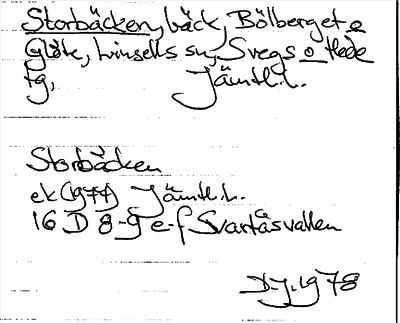 Storbäcken, bäck, Bölberget o
Glöte, Linsells sn, Svegs o Hede
tg, Jämtl.l.
Storbäcken
ek (1977) Jämtl.l.
16 D 8-g e-f Svartåsvallen
D-J. 1978